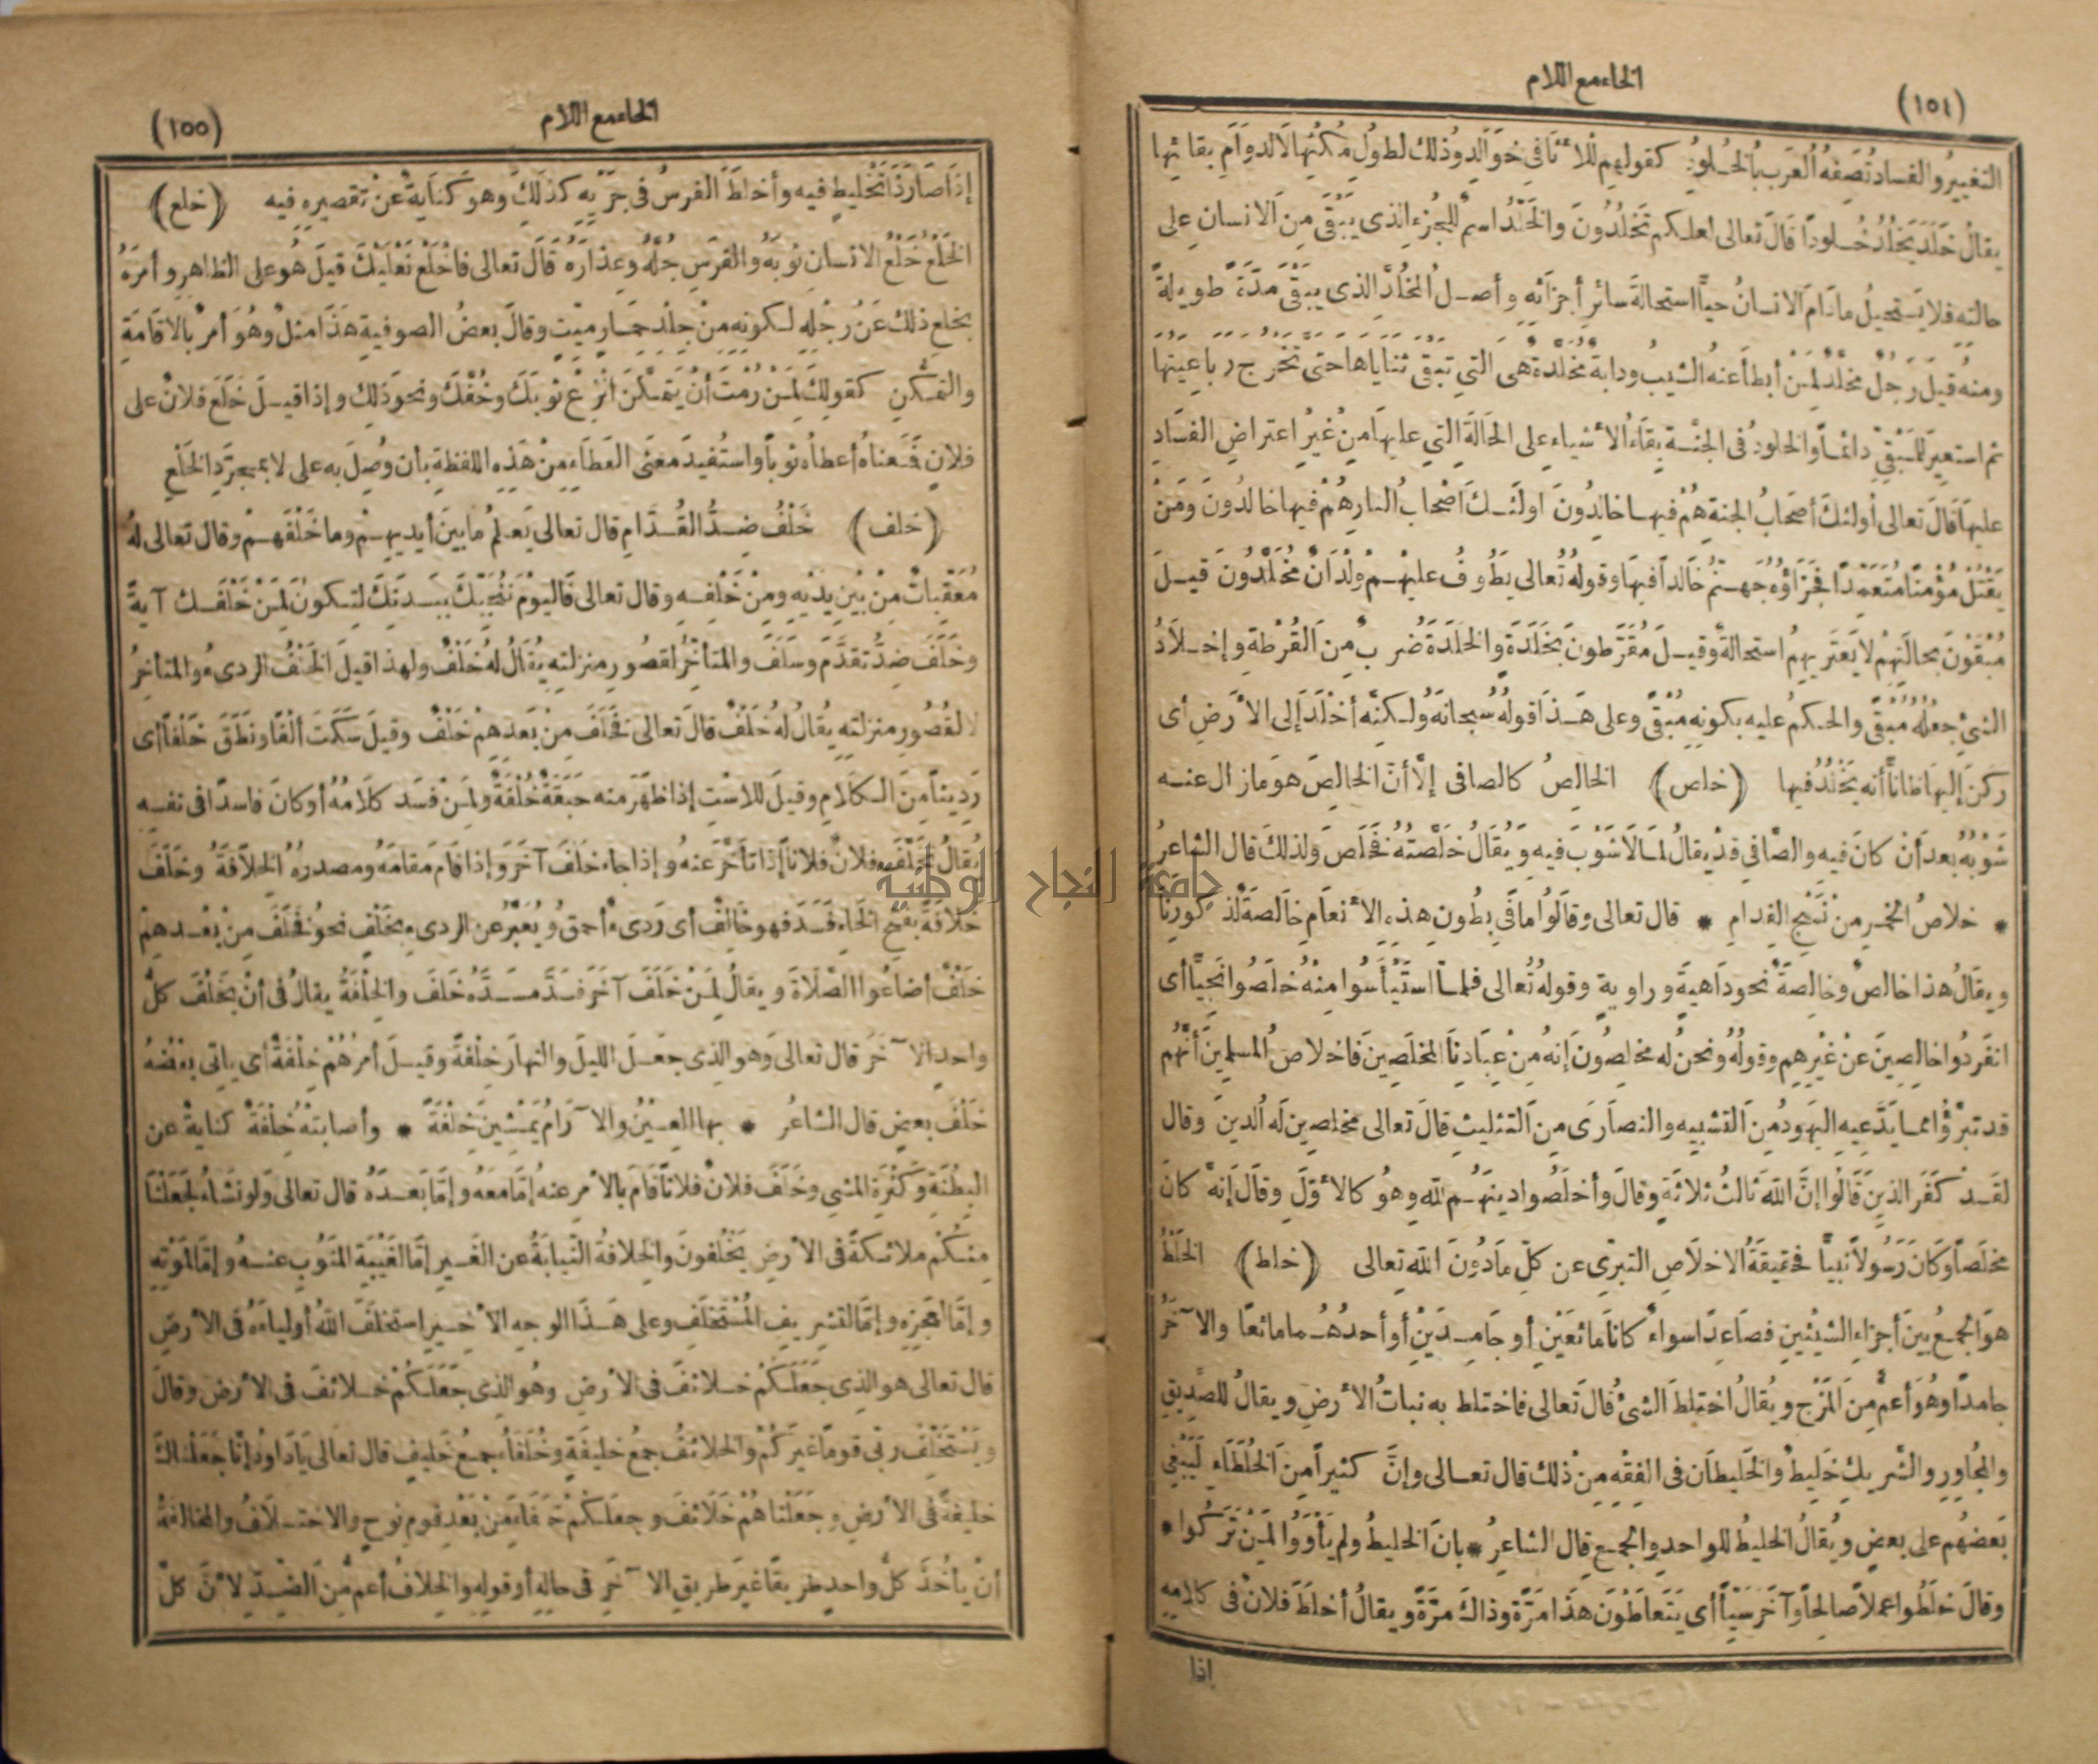 (١٥١)
الخاء مع اللام
التغيير والفساد تصفه العرب بالخلود كقولهم للأثافي خوالد وذلك لطول مكثها لا لدوام بقائها
يقال خلد يخلد خلودا قال تعالى لعلكم تخلدون والخلد اسم للجزء الذى يبقى من الانسان على
حالته فلا يستحيل مادام الانسان حيا استحالة سائر أجزائه وأصل المخلد الذى يبقى مدة طويلة
ومنه قيل رجل مخلد لمن أبطأ عنه الشيب ودابة مخلدة هى التي تبقى ثناياها حتى تخرج رباعيتها
ثم استعير للمبقى دائما والخلود فى الجنة بقاء الأشياء على الحالة التي عليها من غير اعتراض الفساد
عليها قال تعالى أولئك أصحاب الجنة هم فيها خالدون اولئك أصحاب النار هم فيها خالدون ومن
يقتل مؤمنا متعمدا فجزاؤه جهنم خالدا فيها وقوله تعالى يطوف عليهم ولدان مخلدون قيل
مبقون بحالتهم لا يعتريهم استحالة وقيل مقرطون بخلدة والخلدة ضرب من القرطة وإخلاد
الشئ جعله مبقى والحكم عليه بكونه مبقى وعلى هذا قوله سبحانه ولكنه أخلد إلى الأرض أى
ركن إليها ظانا أنه يخلد فيها (خلص) الخالص كالصافى إلا أن الخالص هو ما زال عنه
شوبه بعد أن كان فيه والصافي قد يقال لما لا شوب فيه ويقال خلصته فخلص ولذلك قال الشاعر
* خلاص الخمر من نسج الفدام * قال تعالى وقالوا ما فى بطون هذه الأنعام خالصة لذكورنا
ويقال هذا خالص وخالصة نحو داهية وراوية وقوله تعالى فلما استيأسوا منه خلصوا نجيا أى
انفردوا خالصين عن غيرهم وقوله ونحن له مخلصون إنه من عبادنا المخلصين فاخلاص المسلمين أنهم
قد تبرؤا مما يدعيه اليهود من التشبيه والنصارى من التثليث قال تعالى مخلصين له الدين وقال
لقد كفر الذين قالوا إن الله ثالث ثلاثة وقال وأخلصوا دينهم لله وهو كالأول وقال إنه كان
مخلصا وكان رسولا نبيا فحقيقة الاخلاص التبرى عن كل ما دون الله تعالى (خلط) الخلط
هو الجمع بين أجزاء الشيئين فصاعدا سواء كانا مائعين أو جامدين أو أحدهما مائعا والآخر
جامدا وهو أعم من المزج ويقال اختلط الشئ قال تعالى فاختلط به نبات الأرض ويقال للصديق
والمجاور والشريك خليط والخليطان فى الفقه من ذلك قال تعالى وإن كثيرا من الخلطاء ليبغى
بعضهم على بعض ويقال الخليط للواحد والجمع قال الشاعر * بان الخليط ولم يأووا لمن تركوا *
وقال خلطوا عملا صالحا وآخر سيئا أى يتعاطون هذا مرة وذاك مرة ويقال أخلط فلان فى كلامه
إذا
(١٥٥)
الخاء مع اللام
إذا صار ذا تخليط فيه وأخلط الفرس فى جريه كذلك وهو كناية عن تقصيره فيه (خلع)
الخلع خلع الانسان ثوبه والفرس جله وعذاره قال تعالى فاخلع نعليك قيل هو على الظاهر وأمره
بخلع ذلك عن رجله لكونه من جلد حمار ميت وقال بعض الصوفية هذا مثل وهو أمر بالاقامة
والتمكن كقولك لمن رمت أن يتمكن انزع ثوبك وخفك ونحو ذلك وإذا قيل خلع فلان على
فلان فمعناه أعطاه ثوبا واستفيد معنى العطاء من هذه اللفظة بأن وصل به على لا بمجرد الخلع
(خلف) خلف ضد القدام قال تعالى يعلم ما بين أيديهم وما خلفهم وقال تعالى له
معقبات من بين يديه ومن خلفه وقال تعالى فاليوم ننجيك ببدنك لتكون لمن خلفك آية
وخلف ضد تقدم وسلف والمتأخر لقصور منزلته يقال له خلف ولهذا قيل الخلف الردىء والمتأخر
لا لقصور منزلته يقال له خلف قال تعالى فخلف من بعدهم خلف وقيل سكت ألفا ونطق خلفا أى
رديئا من الكلام وقيل للاست إذا ظهر منه حبقة خلفة ولمن فسد كلامه أو كان فاسدا فى نفسه
يقال تخلف فلان فلانا إذا تأخر عنه وإذا جاء خلف آخر وإذا قام مقامه ومصدره الخلافة وخلف
خلافة بفتح الخاء فسد فهو خالف أى ردىء أحمق ويعبر عن الردىء بخلف نحو فخلف من بعدهم
خلف أضاعوا الصلاة ويقال لمن خلف آخر فسد مسده خلف والخلفة يقال فى أن يخلف كل
واحد الآخر قال تعالى وهو الذى جعل الليل والنهار خلفة وقيل أمرهم خلفة أى ياتى بعضه
خلف بعض قال الشاعر * بها العين والآرام يمشين خلفة * وأصابته خلفة كناية عن
البطنة وكثرة المشي وخلف فلان فلانا قام بالأمر عنه إما معه وإما بعده قال تعالى ولو نشاء لجعلنا
منكم ملائكة فى الأرض يخلفون والخلافة النيابة عن الغير إما لغيبة المنوب عنه وإما لموته
وإما لعجزه وإما لتشريف المستخلف وعلى هذا الوجه الأخير استخلف الله أولياءه فى الأرض
قال تعالى هو الذى جعلكم خلائف فى الأرض وهو الذى جعلكم خلائف فى الأرض وقال
ويستخلف ربى قوما غيركم والخلائف جمع خليفة وخلفاء جمع خليف قال تعالى ياداود إنا جعلناك
خليفة فى الأرض وجعلناهم خلائف وجعلكم خلفاء من بعد قوم نوح والاختلاف والمخالفة
أن يأخذ كل واحد طريقا غير طريق الآخر فى حاله أو قوله والخلاف أعم من الضد لأن كل
جامعة النجاح الوطنية